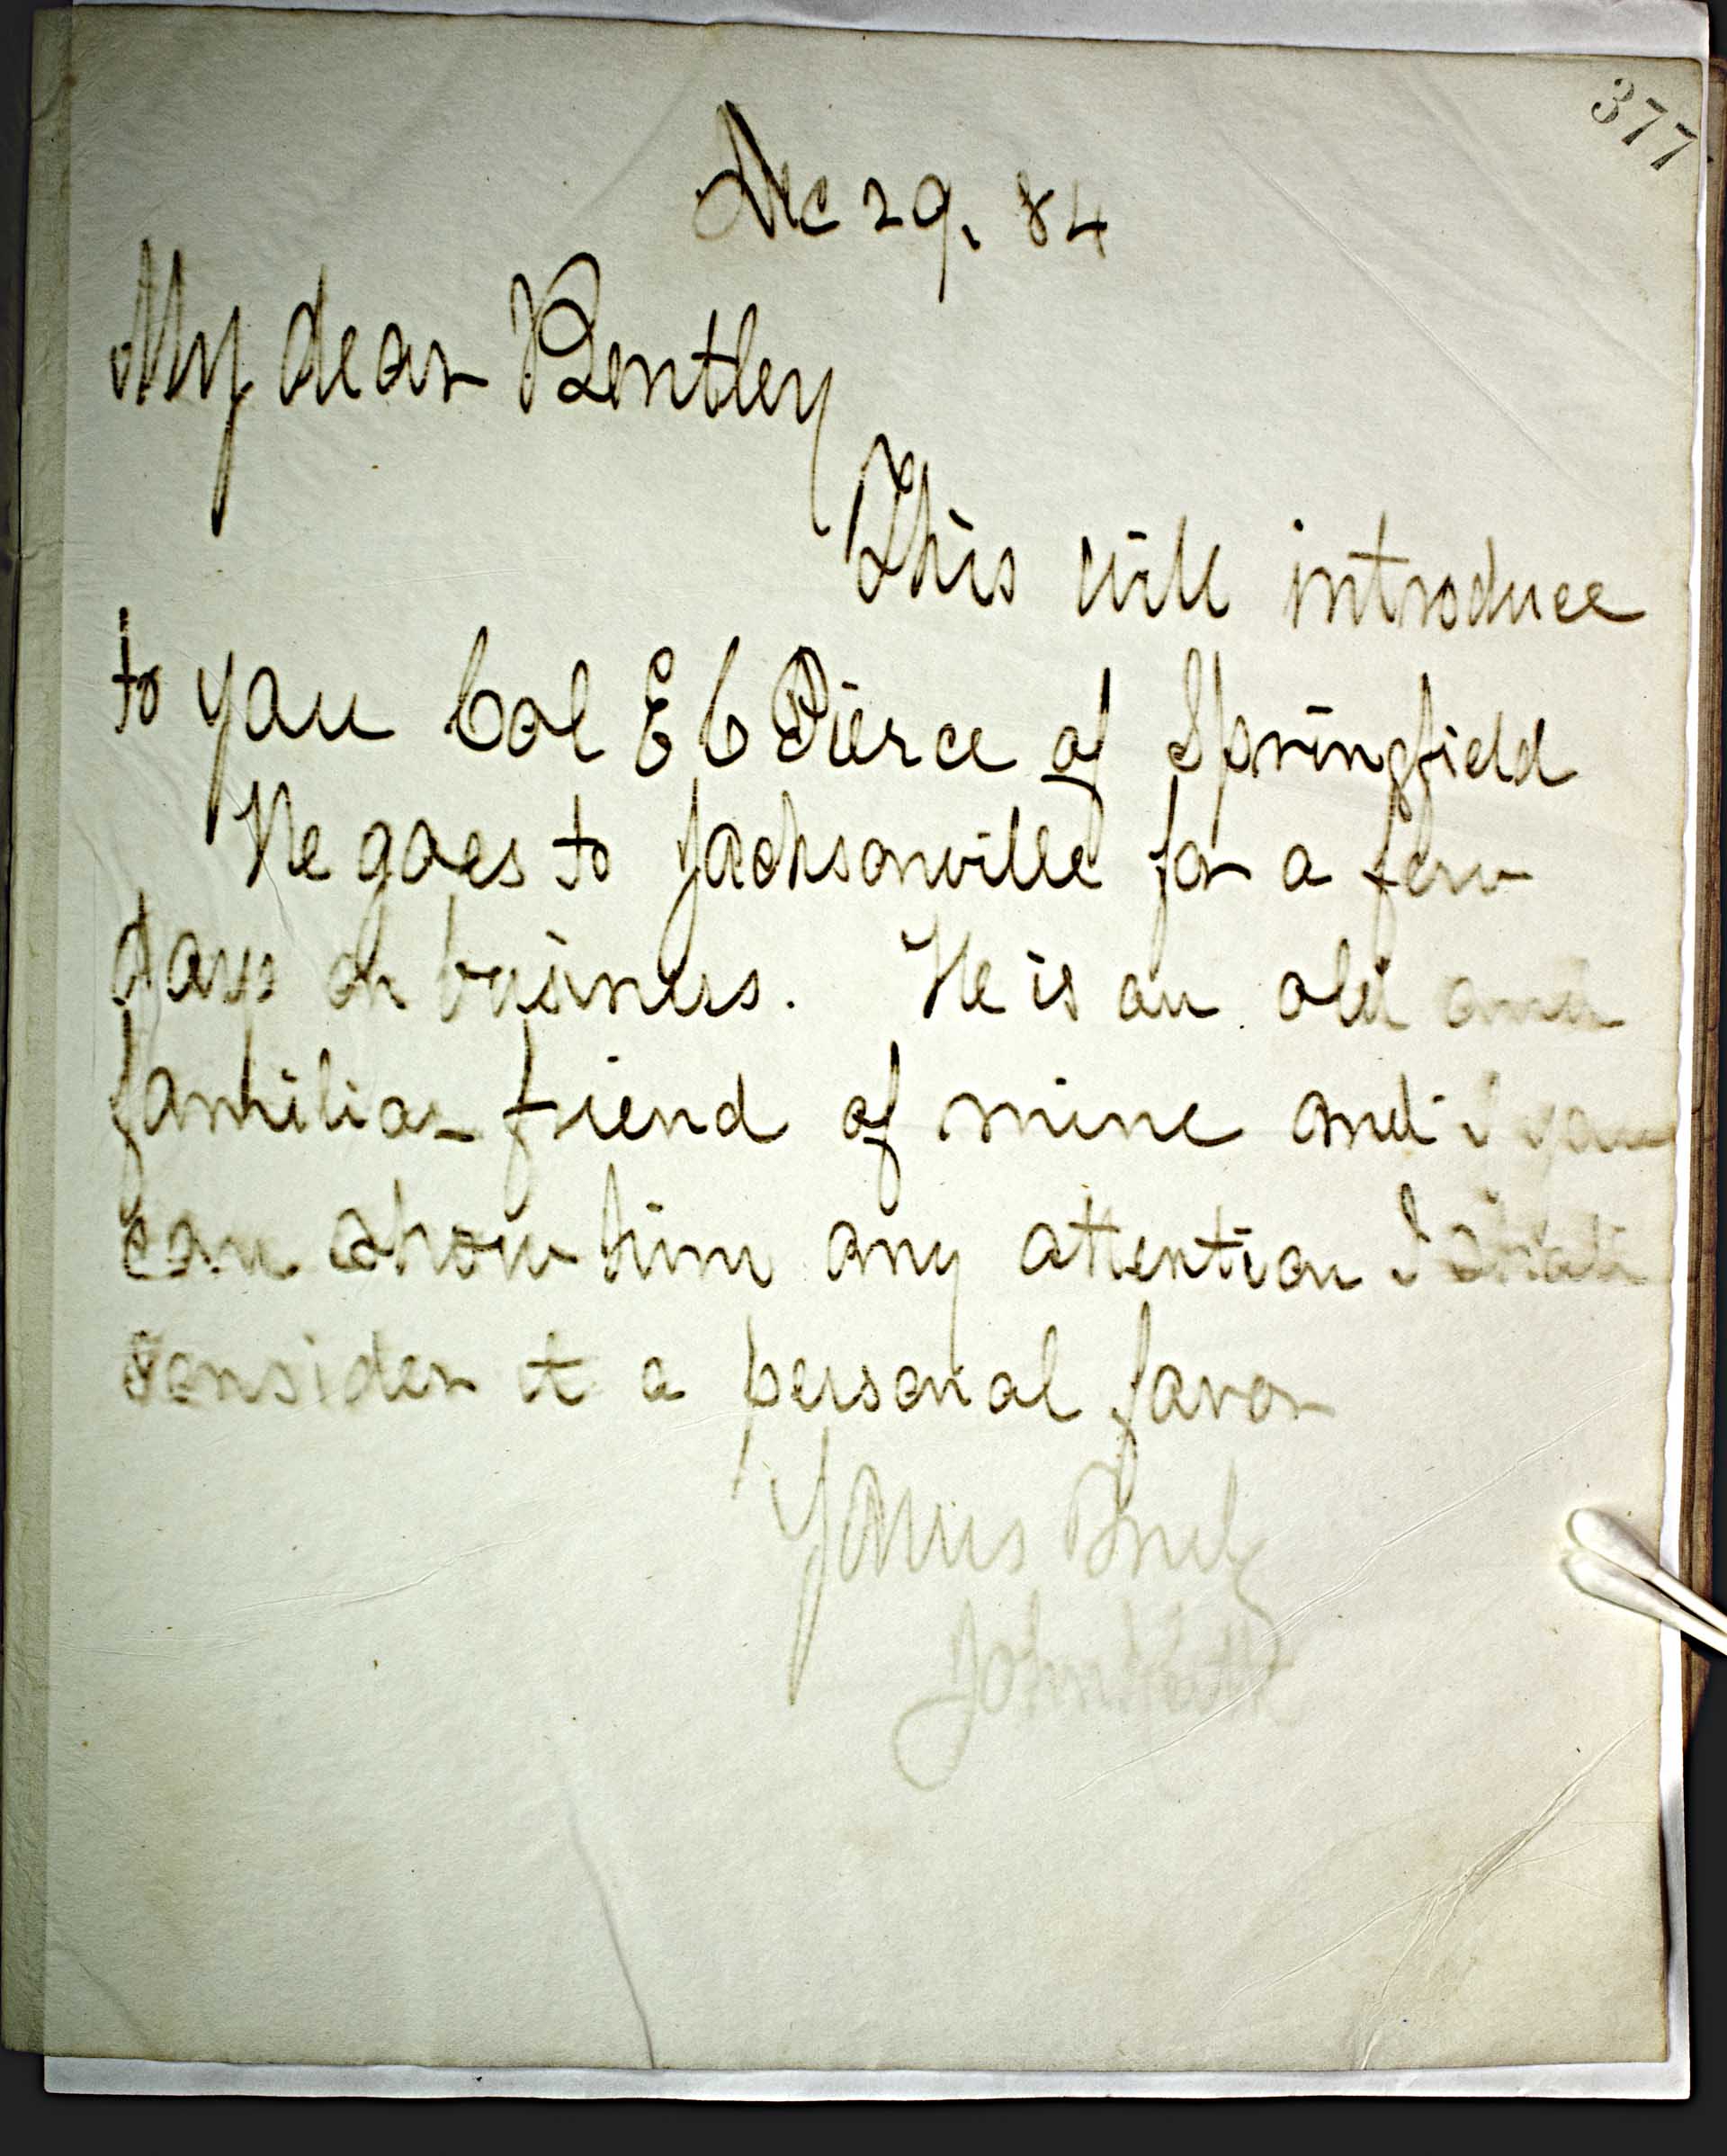 377
Dec 29. 84
My dear Bentley
This will introduce
to you Col E C Pierce of Springfield
He goes to Jacksonville for a few
days on business. He is an old and
familiar friend of mine and if you
can show him any attention I shall
consider it a personal favor
Yours Truly
John